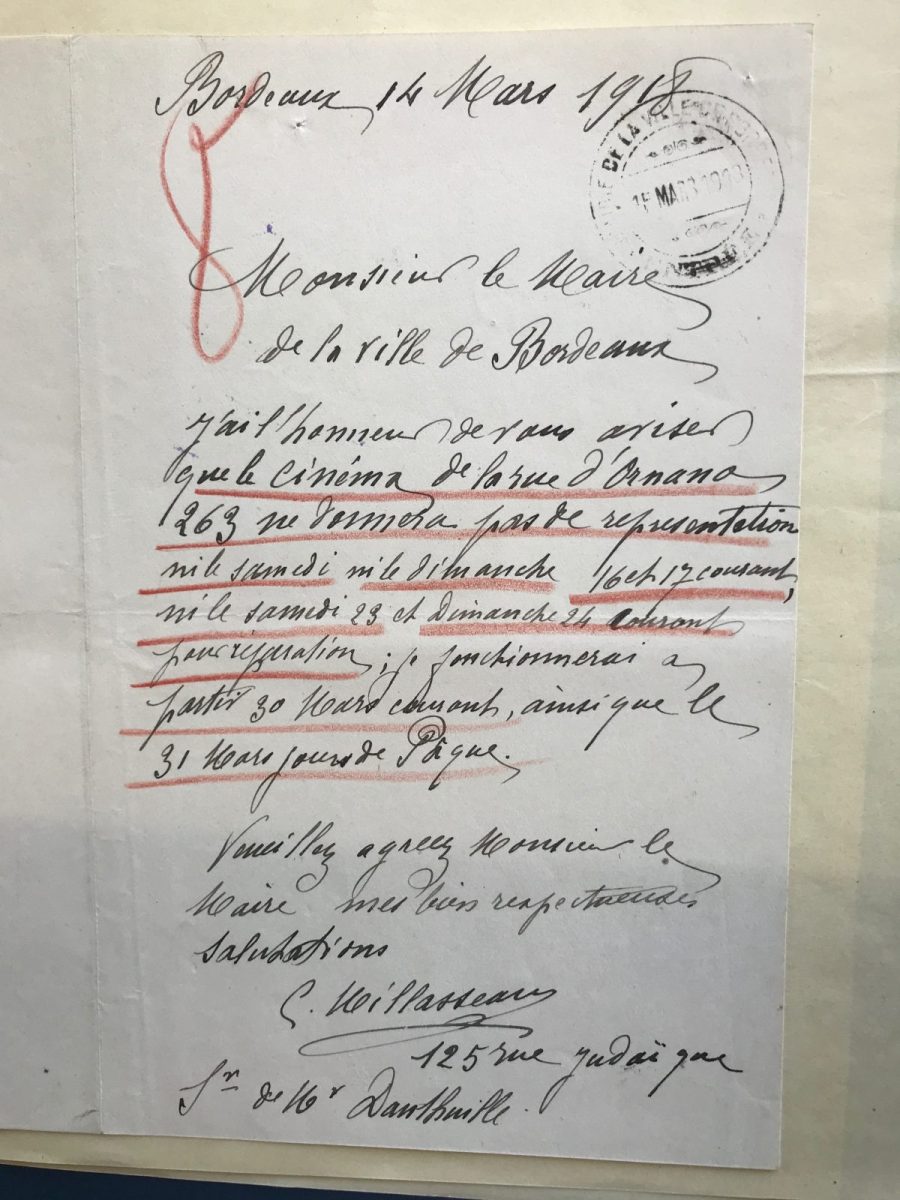 Bordeaux 14 Mars 1918
DE LA VILLE DE
15 MARS 1918
Monsieur le Maire
de la ville de Bordeaux
J'ai l'honneur de vous aviser
que le cinéma de la rue d'Ornano
263 ne donnera pas de representation
ni le samedi ni le dimanche 16 et 17 courant,
ni le samedi 23 et Dimanche 24 courant
pour réparation; je fonctionnerai a
partir 30 Mars courant, ainsi que le
31 Mars jours de Pâque.
Veuillez agreez Monsieur le
Maire mes bien respectueuses
salutations
G. Millasseau
125 rue Judaïque
Sr de Mr Dauthuille.